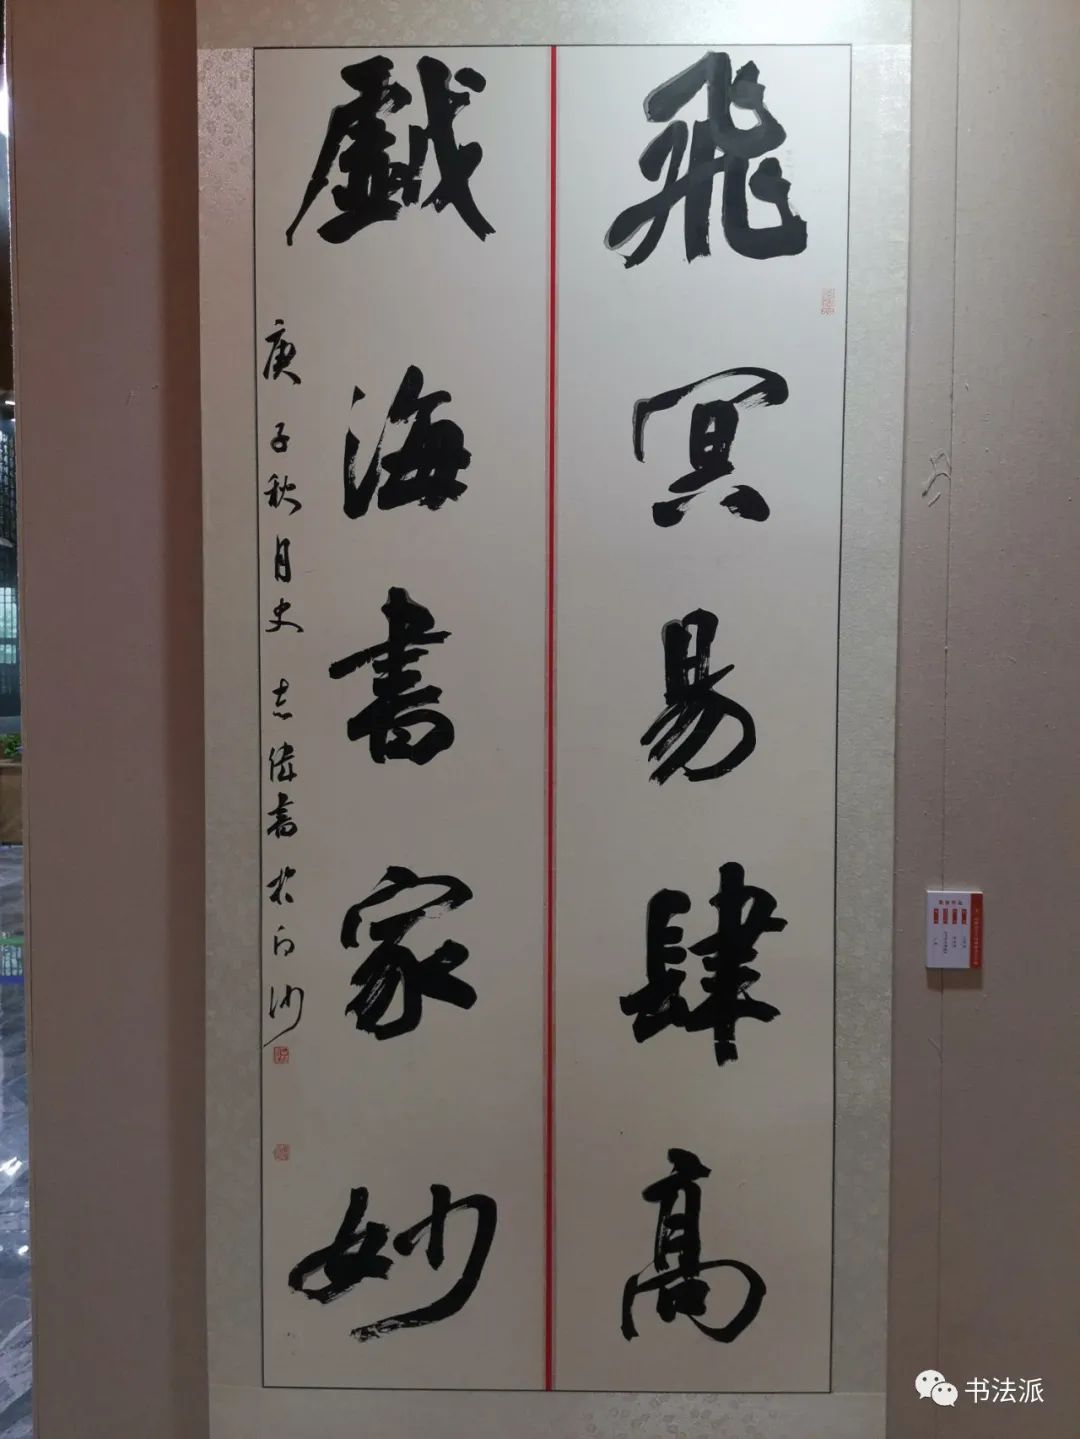 飛冥易肆高
戲海書家妙
庚子秋月史志偉書於白沙
书法派